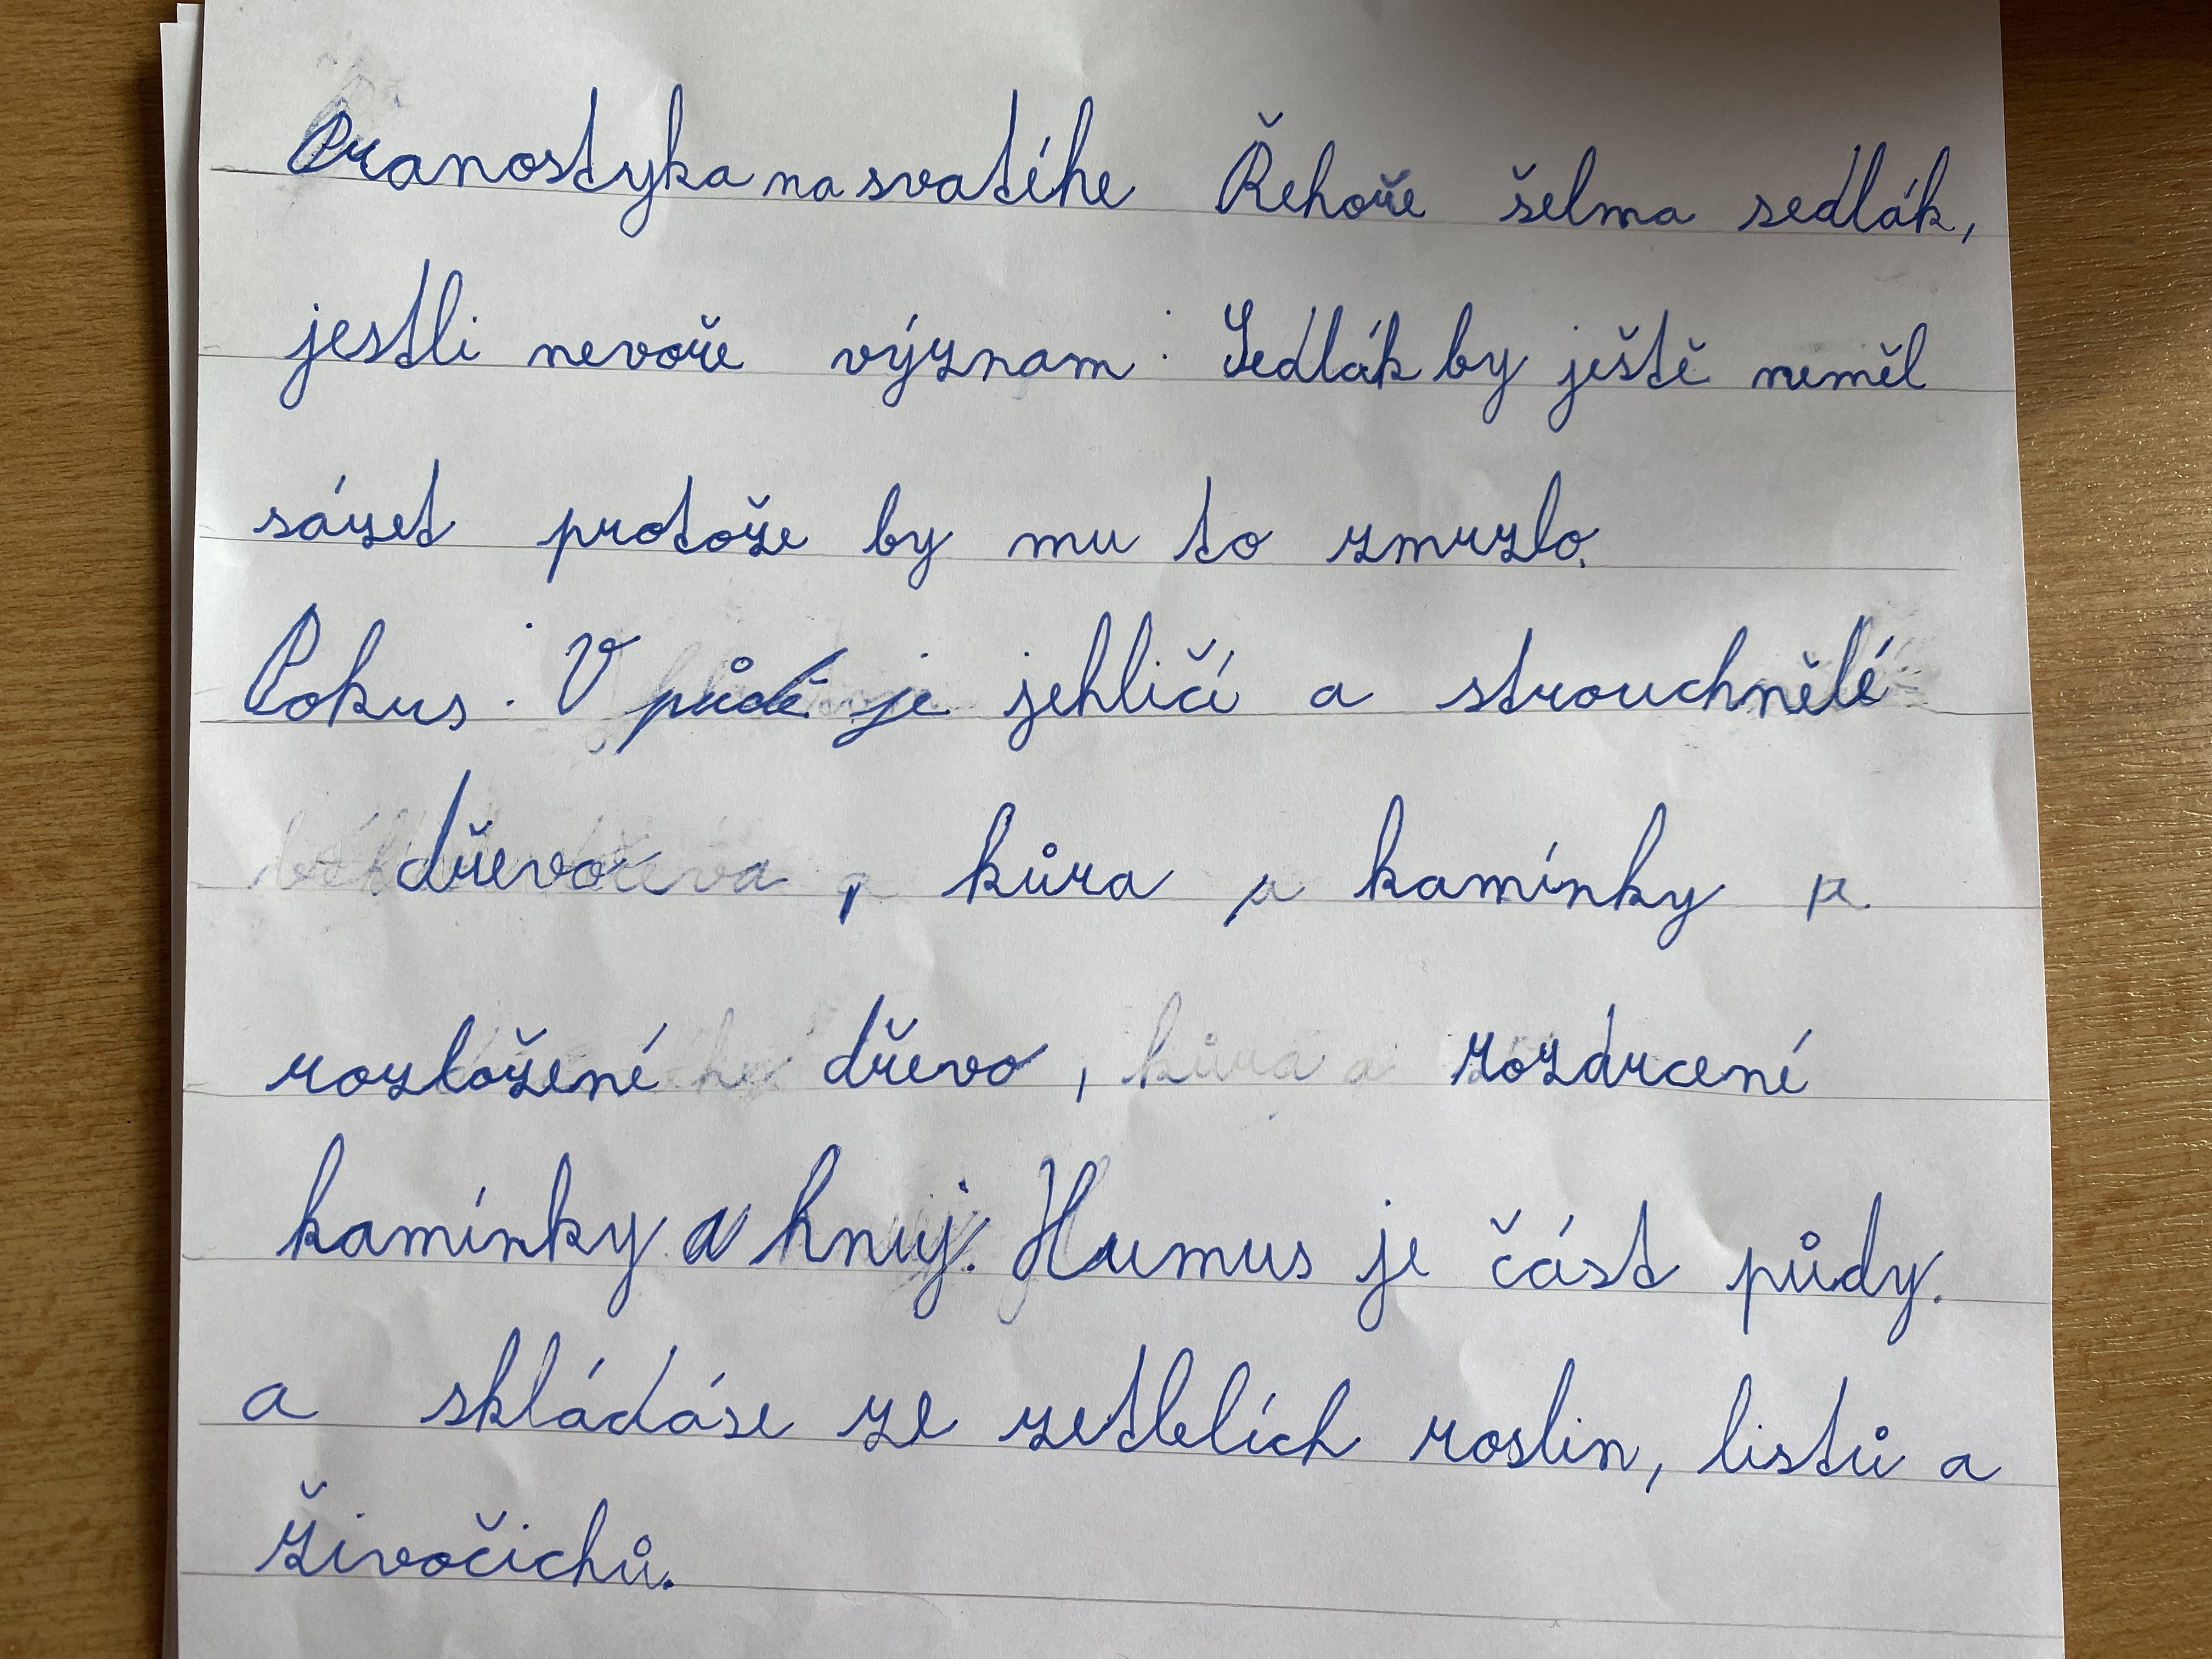 Pranostyka na svatéhe Řehoře šelma sedlák,
jestli nevoře význam: Sedlák by ještě neměl
sázet protože by mu to zmrzlo.
Pokus: V půdě je jehličí a strouchnělé
dřevo, kůra, kamínky
rozložené dřevo, rozdrcené
kamínky a hnuj. Humus je část půdy.
a skládáse ze zetlelích roslin, listů a
živočichů.